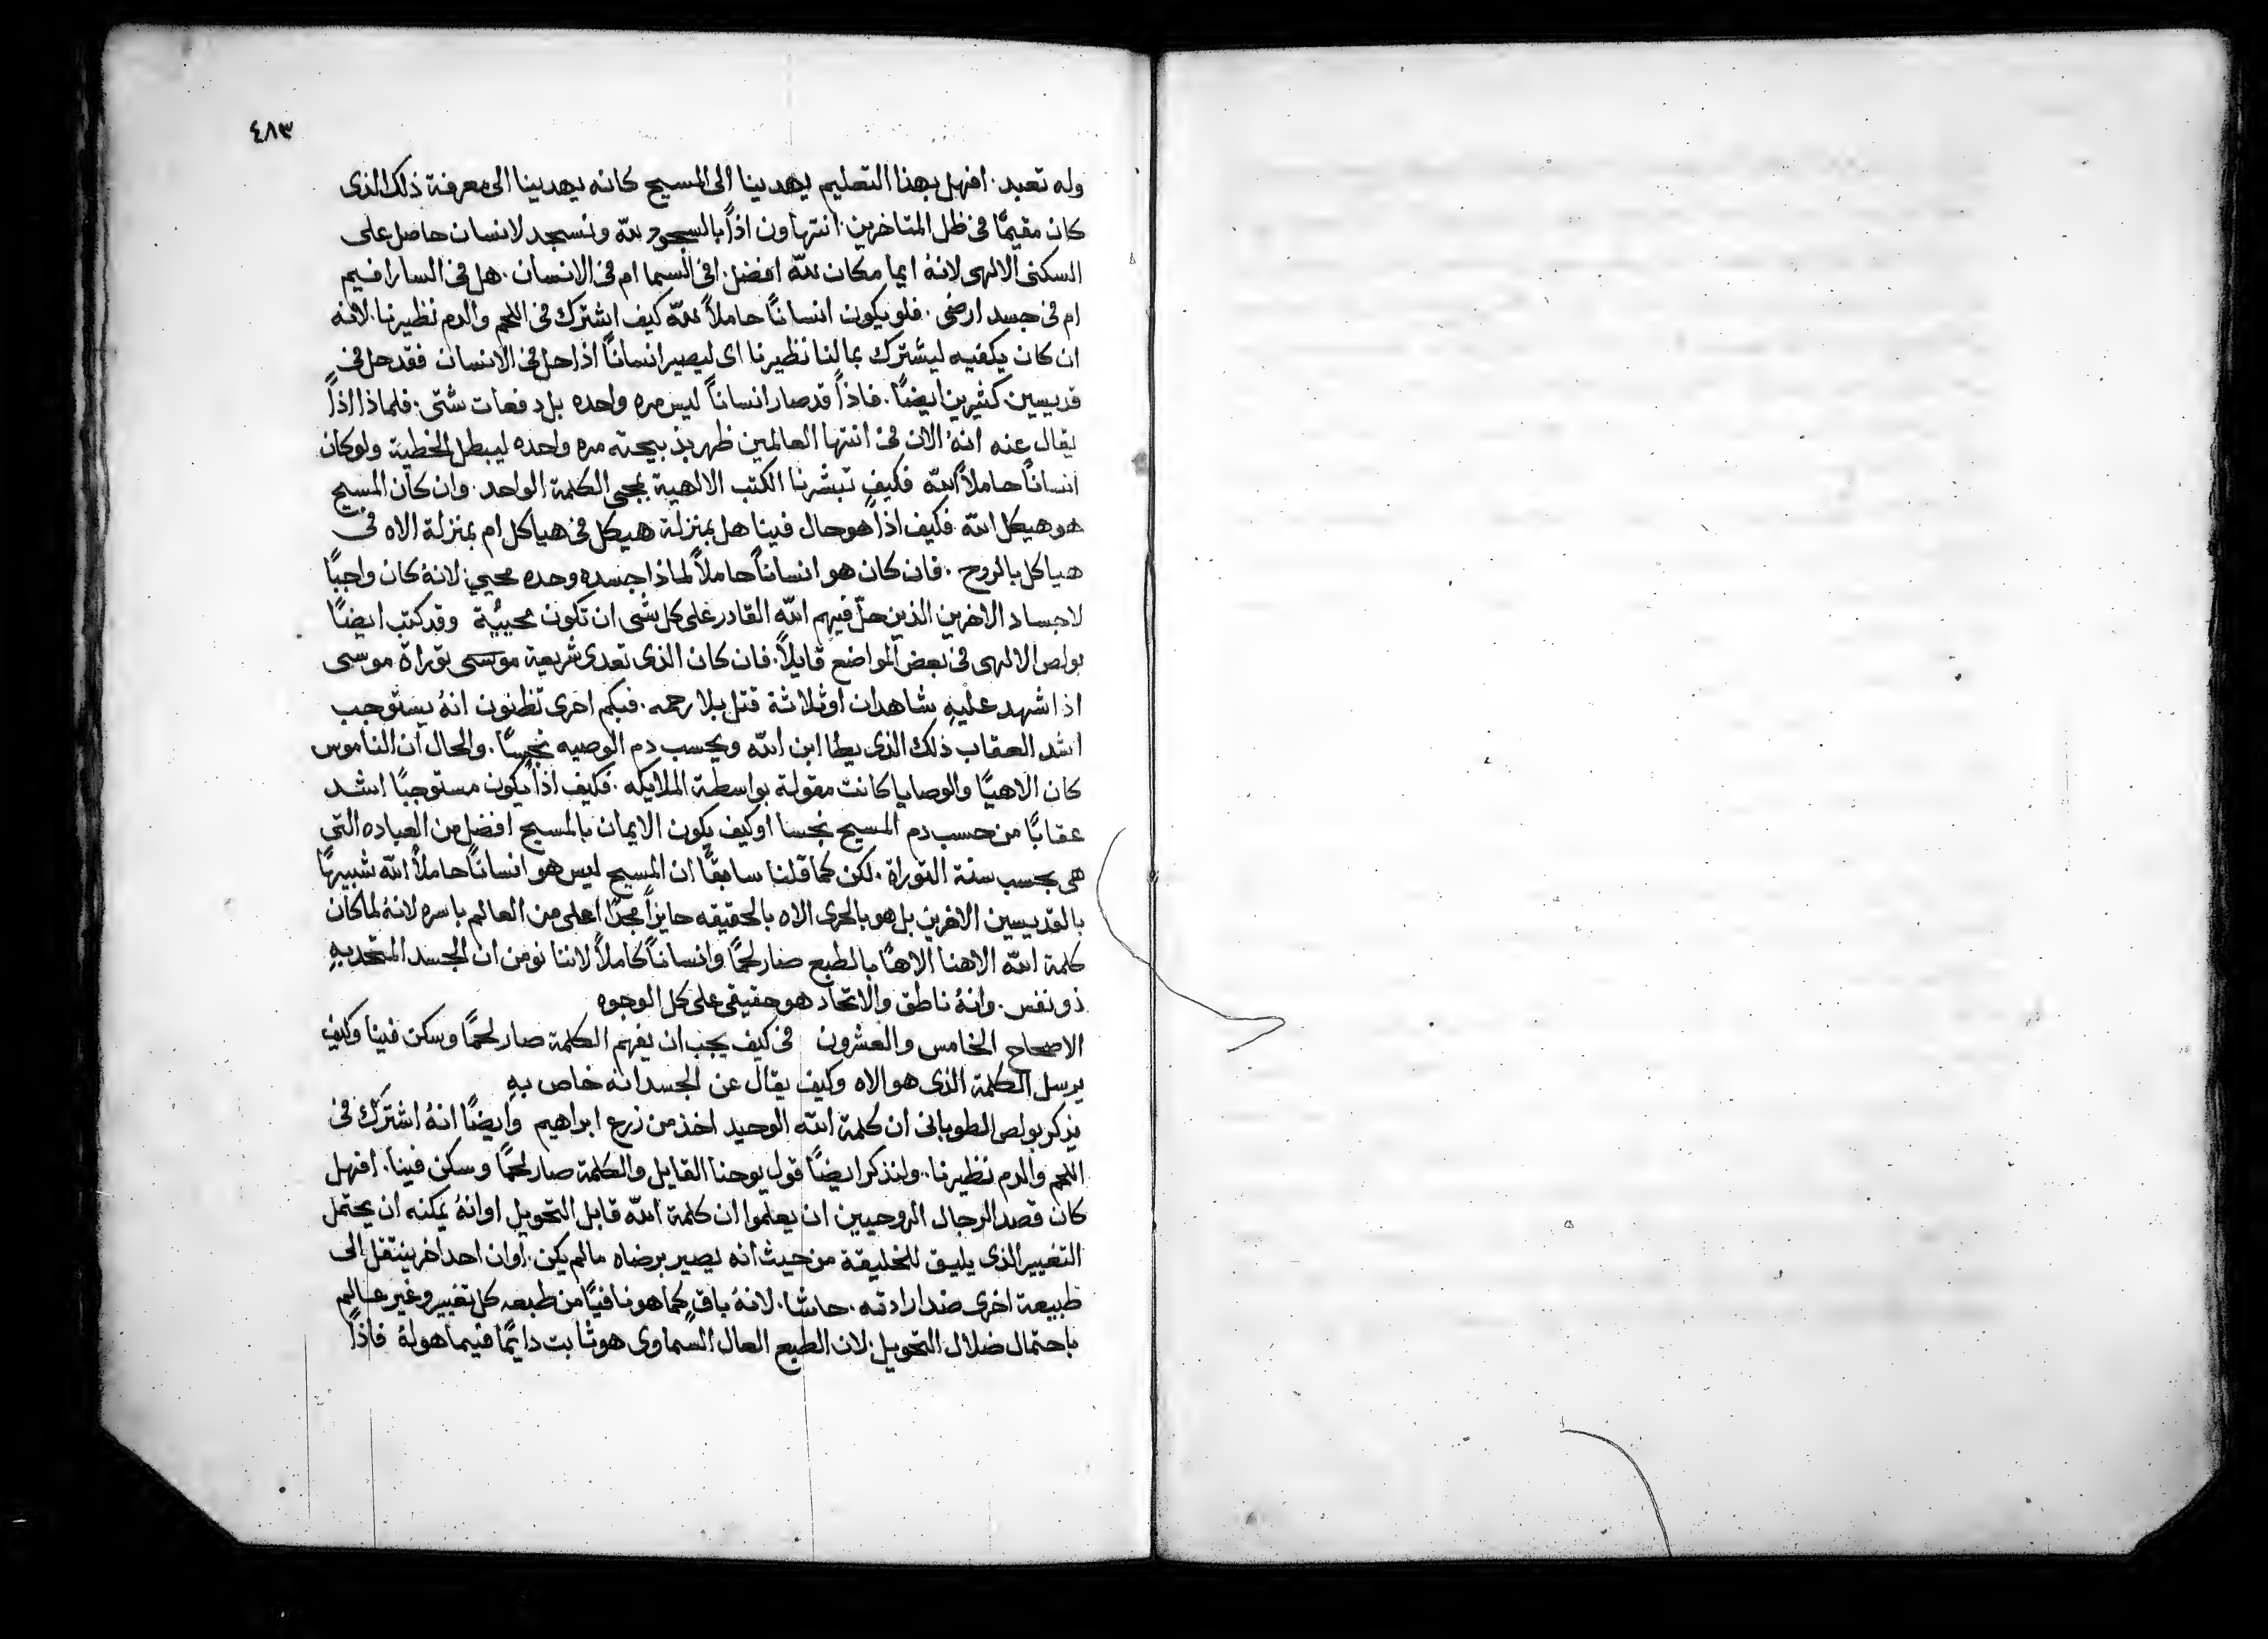 ٤٨٣
وله تعبد. افهل بهذا التعليم يهدينا الى المسيح كانه يهدينا الى معرفة ذلك الذى
كان مقيمًا فى ظل المتاخرين. انتهاون اذاً بالسجود لله ونسجد لانسان حاصل على
السكنى الالهى لانهُ ايما مكان لله افضل. افى السما ام فى الانسان. هل فى السارافيم
ام فى جسد ارضى. فلو يكون انسانًا حاملاً لله كيف اشترك فى اللحم والدم نظيرنا. لانه
ان كان يكفيه ليشترك بمالنا نظيرنا اى ليصير انسانًا اذا حل فى الانسان فقد حل فى
قديسين كثيرين ايضًا. فاذاً قد صار انساناً ليس مره واحده بل دفعات شتى. فلماذا اذاً
يقال عنه انهُ الان فى انتها العالمين ظهر بذبيحته مره واحده ليبطل الخطية ولو كان
انساناً حاملاً الله فكيف تبشرنا الكتب الالهية بمجى الكلمة الواحد. وان كان المسيح
هو هيكل الله فكيف اذاً هو حال فينا هل بمنزلة هيكل فى هياكل ام بمنزلة الاه فى
هياكل بالروح. فان كان هو انساناً حاملاً لماذا جسده وحده محيي. لانهُ كان واجبًا
لاجساد الاخرين الذين حلّ فيهم الله القادر على كل شى ان تكون محييّة وقد كتب ايضًا
بولص الالهى فى بعض المواضع قايلاً. فان كان الذى تعدى شريعة موسى توراة موسى
اذا شهد عليهِ شاهدان او ثلاثة قتل بلا رحمه. فبكم احرى تظنون انهُ يستوجب
اشد العقاب ذلك الذى يطا ابن الله ويحسب دم الوصيه نجسًا. والحال ان الناموس
كان الاهيًا والوصايا كانت مقولة بواسطة الملايكه. فكيف اذاً يكون مستوجبًا اشد
عقابًا من حسب دم المسيح نجسا او كيف يكون الايمان بالمسيح افضل من العباده التى
هى بحسب سنة التوراة. لكن كما قلنا سابقًا ان المسيح ليس هو انساناً حاملاً الله شبيهًا
بالقديسين الاخرين بل هو بالحرى الاه بالحقيقه حايزاً مجدًا اعلى من العالم باسره لانهُ لما كان
كلمة الله الاهنا الاهًا بالطبع صار لحمًا وانساناً كاملاً لاننا نومن ان الجسد المتحد بهِ
ذو نفس. وانهُ ناطق والاتحاد هو حقيقى على كل الوجوه
الاصحاح الخامس والعشرون فى كيف يجب ان يفهم الكلمة صار لحمًا وسكن فينا وكيف
يرسل الكلمة الذى هو الاه وكيف يقال عن الجسد انه خاص بهِ
يذكر بولص الطوبانى ان كلمة الله الوحيد اخذ من زرع ابراهيم وايضًا انهُ اشترك فى
اللحم والدم نظيرنا.. ولنذكر ايضًا قول يوحنا القايل والكلمة صار لحمًا وسكن فينا. افهل
كان قصد الرجال الروحيين ان يعلموا ان كلمة الله قابل التحويل او انهُ يمكنه ان يحتمل
التغيير الذى يليق للخليقة من حيث انه يصير برضاه ما لم يكن. او ان احدا اخر ينتقل الى
طبيعة اخرى ضد ارادته. حاشا. لانهُ باقٍ كما هو نافيًا من طبعه كل تغيير وغير عالم
باحتمال ضلال التحويل. لان الطبع العال السماوى هو ثابت دايمًا فيما هو لهُ فاذاً